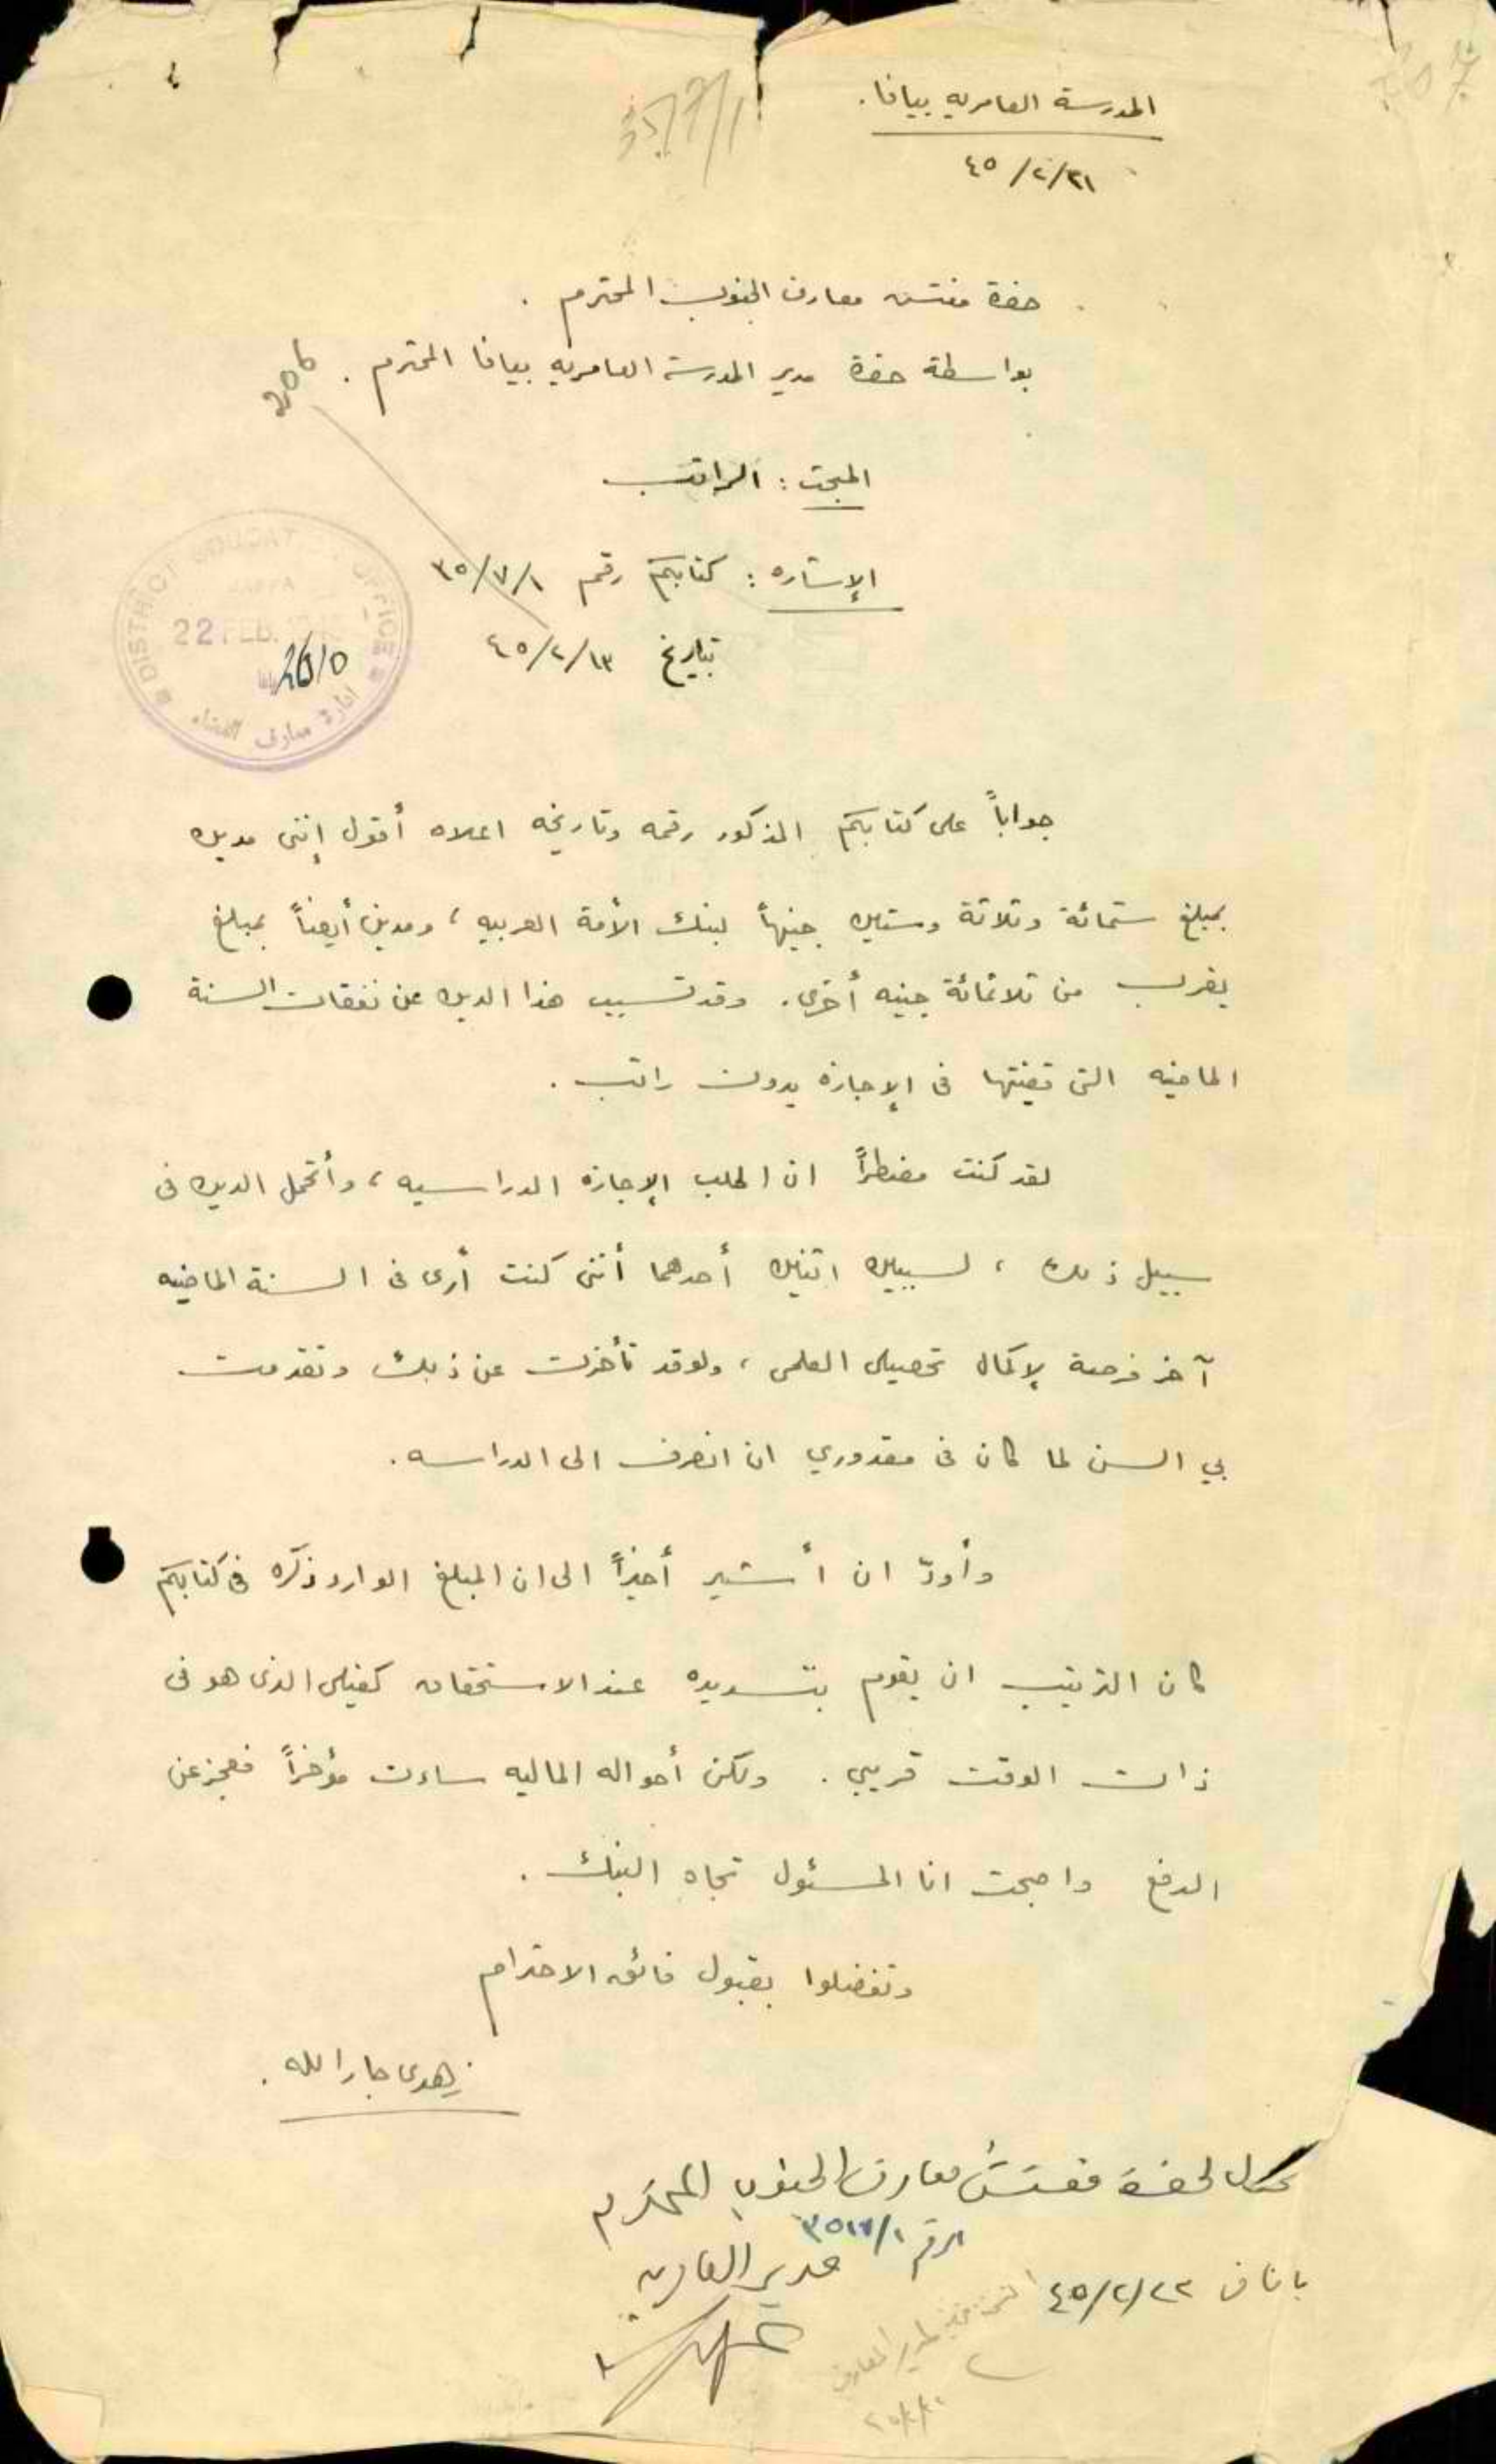 المدرسة العامريه بيافا.
٤٥/٢/٢١
حضرة مفتش معارف الجنوب المحترم .
بواسطة حضرة مدير المدرسة العامريه بيافا المحترم .
206
المبحث : الراتب
الإشاره : كتابكم رقم ٣٥/٧/١
تاريخ ٤٥/٢/١٣
DISTRICT EDUCAT OFFICE
JAFFA
22 FEB.
ادارة معارف اللواء
جواباً على كتابكم المذكور رقمه وتاريخه اعلاه أقول إنني مدين
بمبلغ ستمائة وثلاثة وستين جنيهاً لبنك الأمة العربيه ، ومدين أيضاً بمبلغ
يقرب من ثلاثمائة جنيه أخرى. وقد تسبب هذا الدين عن نفقات السنة
الماضيه التى قضيتها فى الإجازه بدون راتب .
لقد كنت مضطراً ان اطلب الإجازه الدراسيه ، وأتحمل الدين فى
سبيل ذلك ، لسببين اثنين أحدهما أننى كنت أرى فى السنة الماضيه
آخر فرصة لإكمال تحصيلى العلمى ، ولو قد تأخرت عن ذلك وتقدمت
بي السن لما كان فى مقدوري ان انصرف الى الدراسه .
وأودّ ان أشير أخيراً الى ان المبلغ الوارد ذكره فى كتابكم
كان الترتيب ان يقوم بتسديده عند الاستحقاق كفيلى الذى هو فى
ذات الوقت قريبي . ولكن أحواله الماليه ساءت مؤخراً فعجز عن
الدفع واصبحت انا المسئول تجاه البنك .
وتفضلوا بقبول فائق الاحترام
زهدى جارالله .
تحول لحضرة مفتش معارف الجنوب المحترم
الرقم ٣٥/٧/١
مدير العامريه
يافا فى ٤٥/٢/٢٢